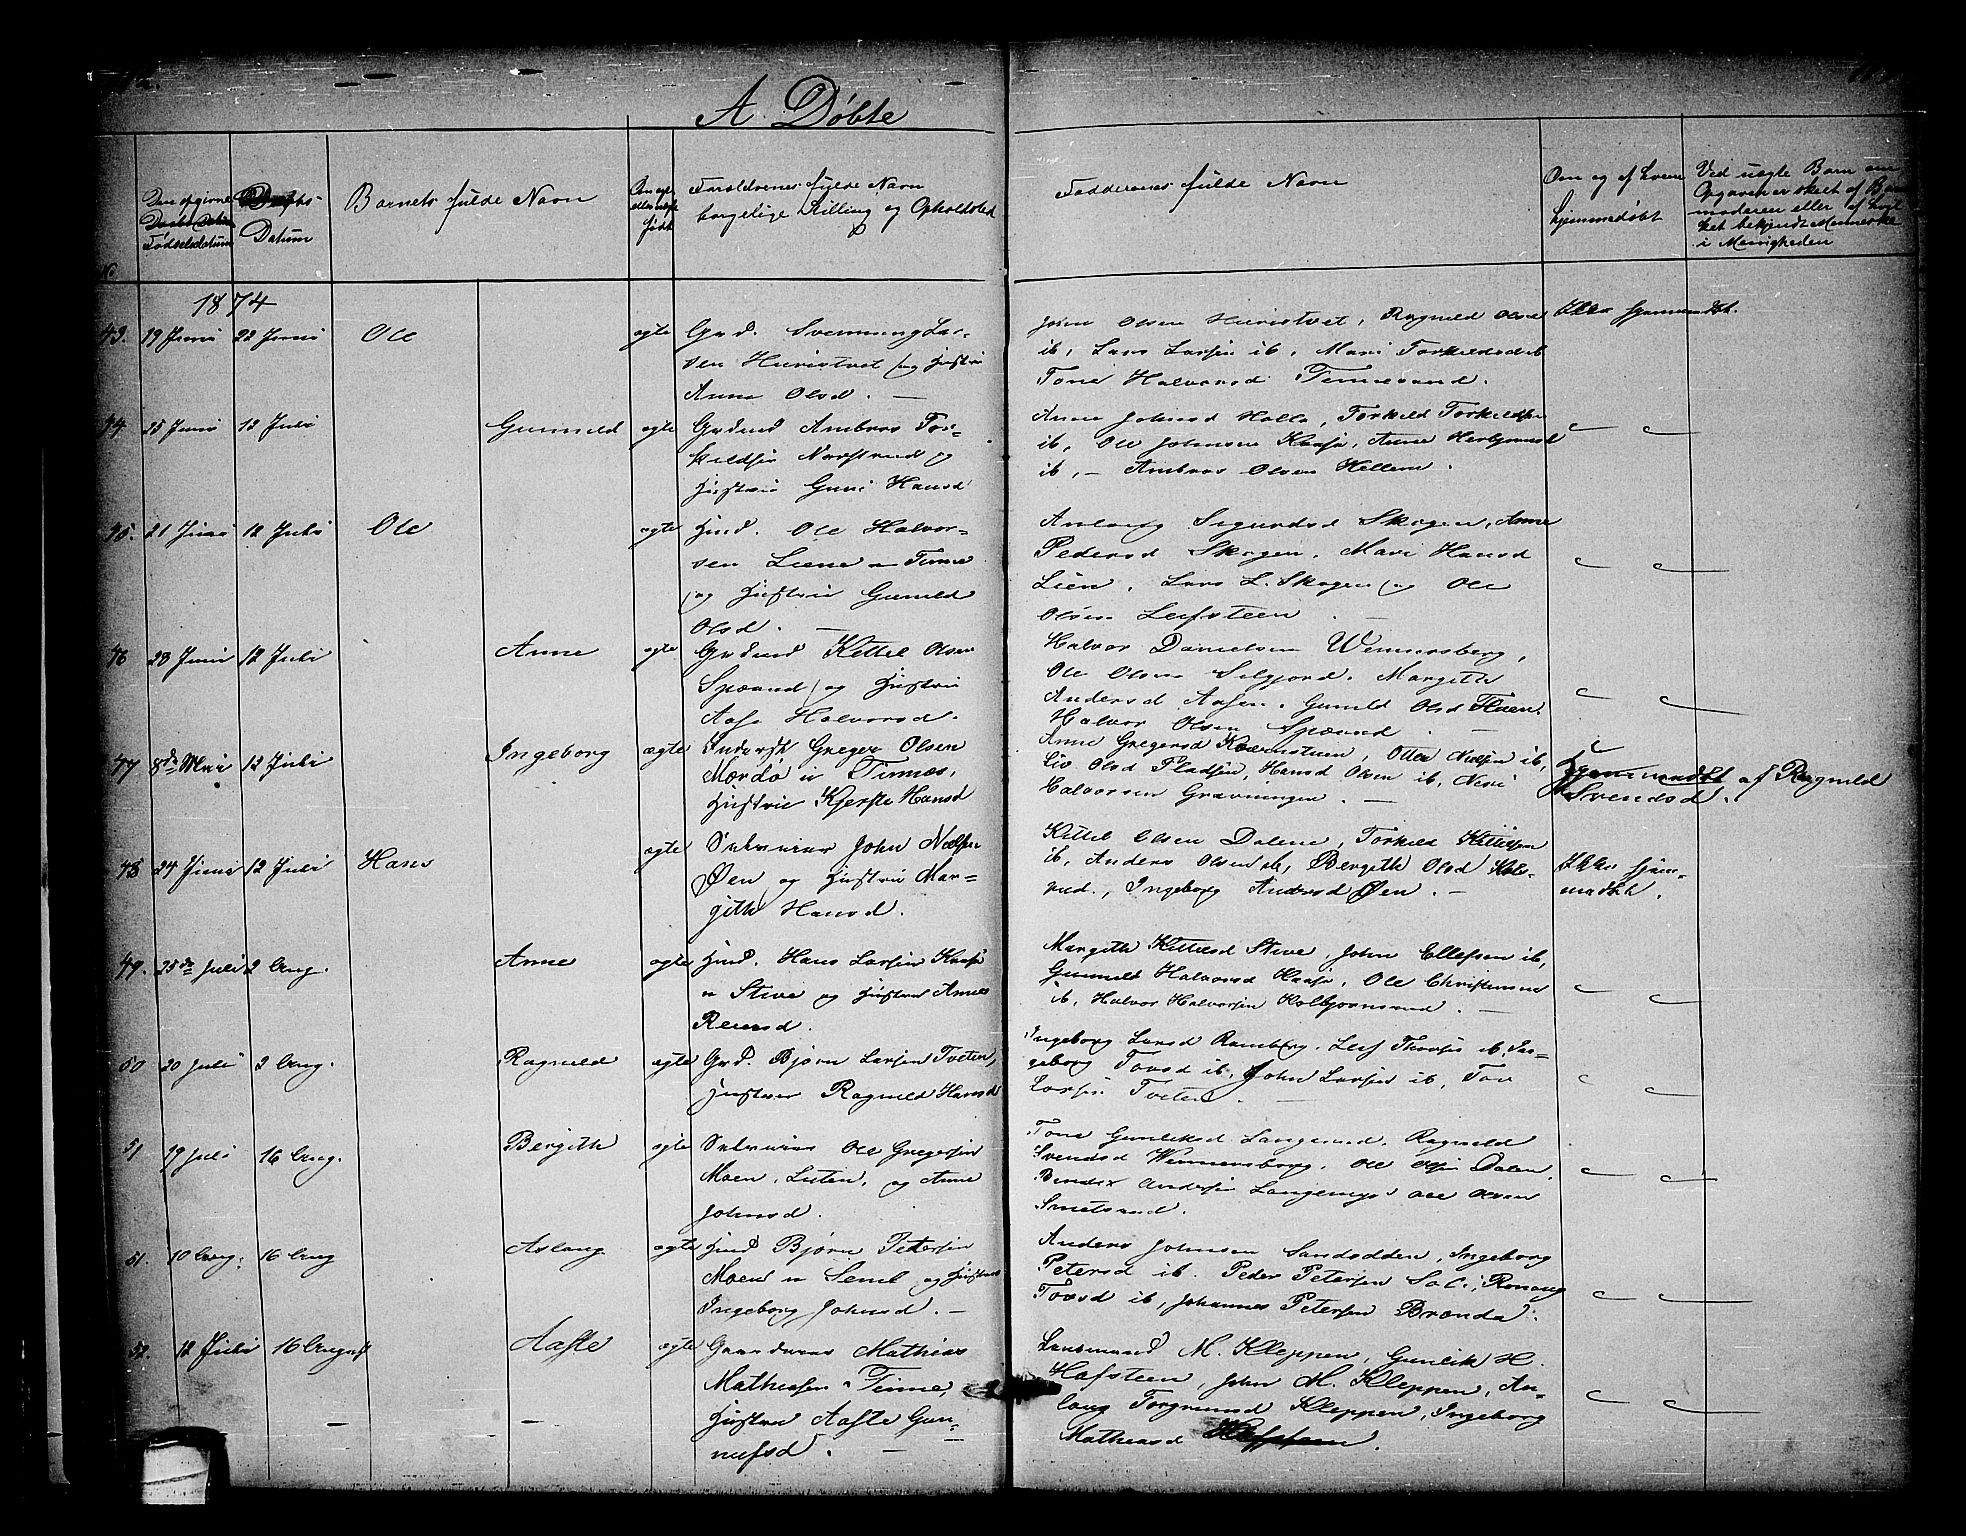 A. Döbte
Barnets fulde Navn
Forældrenes fulde Navn
borgelige Stilling og Opholdsted
Faddernes fulde Navn
Om og af hvem
hjemmedøbt
Ved uægte Børn om
Opgaven er skeet af Barne
moderen eller af hvil
ket bekjendt Menneske
i Menigheden
Fødselsdatum
Datum
No
1874
43. 19 Juni 22 Juni Ole ægte Grd. Svennung Lar-
sen Huvistvet og Hustru
Anne Olsd. —
John Olsen Huvistvet, Ragnild Olsd
ib, Lars Larsen ib, Mari Torkildsd ib
Tone Halvorsd Tinnesand.
Ikke hjemmedøbt.
44 25 Juni 12 Juli Gunnild ægte Grdmd Ambros Tor-
kildsen Norstrud og
Hustru Guni Hansd
Anne Johnsd Holla, Torkild Torkildsen
ib, Ole Johnsen Kaasa, Anne Herbjørnsd
ib, — Ambros Olsen Hellem.
45. 21 Juni 12 Juli Ole ægte Husd. Ole Halvor-
sen Liene u Tinne
og Hustru Gunild
Olsd. —
Anlaug Sigurdsd Skogen, Anne
Pedersd Skogen, Mari Hansd
Lien, Lars L. Skogen og Ole
Olsen Leifsteen
46 23 Juni 12 Juli Anne ægte Grdmd Kettel Olsen
Spaand og Hustru
Aase Halvorsd.
Halvor Danielsen Wennersberg,
Ole Olsen Seljord. Margith
Andersd Aasen. Gunild Olsd Fluen.
Halvor Olsen Spaand. —
47 8de Mai 12 Juli Ingeborg ægte Inderst Greger Olsen
Mærdø i Tinnes,
Hustru Kjerste Hansd
Anne Gregersd Kværnstuen, Otter Nielsen ib,
Liv Olsd Pladsen, Hans Olsen ib, Neri
Halvorsen Gravningen. —
Hjemmedøbt af Ragnild
Svendsd.
48 24 Juni 12 Juli Hans ægte Selveier John Nielsen
Øen og Hustru Mar-
gith Hansd.
Kittel Olsen Dalene, Torkild Kittilsen
ib, Anders Olsen ib, Bergith Olsd
Ingeborg Andersd Øen. —
Ikke hjem-
medøbt.
49. 25de Juli 2 Aug. Anne ægte Husd. Hans Larsen Kaasa
u Stive og Hustru Anne
Reiersd.
Margith Kittilsd Stive, John Ellefsen ib,
Gunnild Halvorsd Kaasa, Ole Christensen
ib, Halvor Halvorsen Kolbjørnsrud. —
50 20 Juli 2 Aug. Ragnild ægte Grd. Bjørn Larsen Tveten,
Hustru Ragnild Hansd
Ingeborg Larsd Ramberg. Leif Thorsen ib, In-
geborg Tovsd ib, John Larsen ib, Tov
Larsen Tveten. —
51 19 Juli 16 Aug. Bergith ægte Selveier Ole Gregersen
Moen, og Anne
Johnsd.
Tone Gunleiksd Langerud. Ragnild
Svendsd Wennersborg. Ole Olsen Dalen.
Andersen Ole Olsen
51. 10 Aug. 16 Aug Aslaug ægte Husd Bjørn Petersen
Moen u Semb og Hustru
Ingeborg Johnsd. —
Anders Johnsen Sandodden, Ingeborg
Petersd ib. Peder Petersen
Tovsd ib, Johannes Petersen Brenda.
52. 12 Juli 16 August Aaste ægte Gaardmand Mathias
Mathiassen Tinne,
Hustru Aaste Gun-
nufsd. —
Lensmand M. Kleppen, Gunleik H.
Hafsteen, John M. Kleppen, As-
laug Torgrimsd Kleppen, Ingeborg
Mathiasd